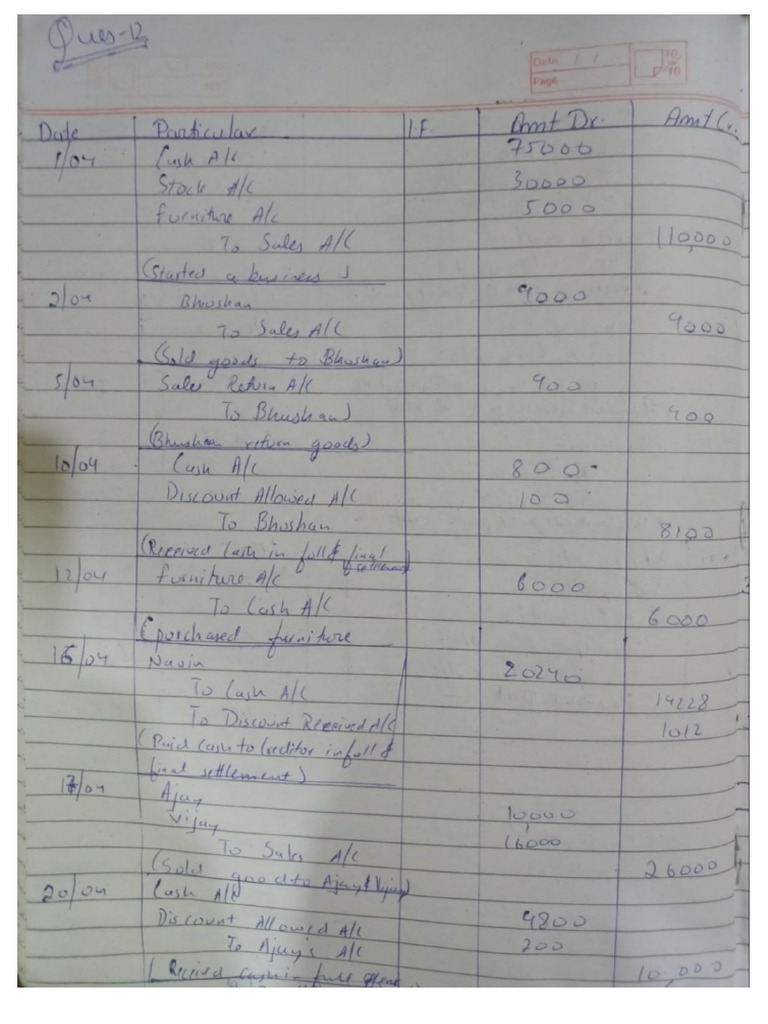 Ques-12
Date / /
Page
Date Particular L.F. Amt Dr. Amt Cr.
1/04 Cash A/C 75000
Stock A/C 30000
Furniture A/C 5000
To Sales A/C 110,000
(Started a business)
2/04 Bhushan 9000
To Sales A/C 9000
(Sold goods to Bhushan)
5/04 Sales Return A/C 900
To Bhushan) 900
(Bhushan return goods)
10/04 Cash A/C 800
Discount Allowed A/C 100
To Bhushan 8100
(Received Cash in full & final settlement)
12/04 Furniture A/C 6000
To Cash A/C 6000
(purchased furniture
16/04 Navin 20240
To Cash A/C 19228
To Discount Received A/C 1012
(Paid cash to Creditor in full &
final settlement)
17/04 Ajay 10,000
Vijay 16000
To Sales A/C 26000
(Sold good to Ajay & Vijay)
20/04 Cash A/C 9800
Discount Allowed A/C 200
To Ajay's A/C 10,000
(Received cash in full